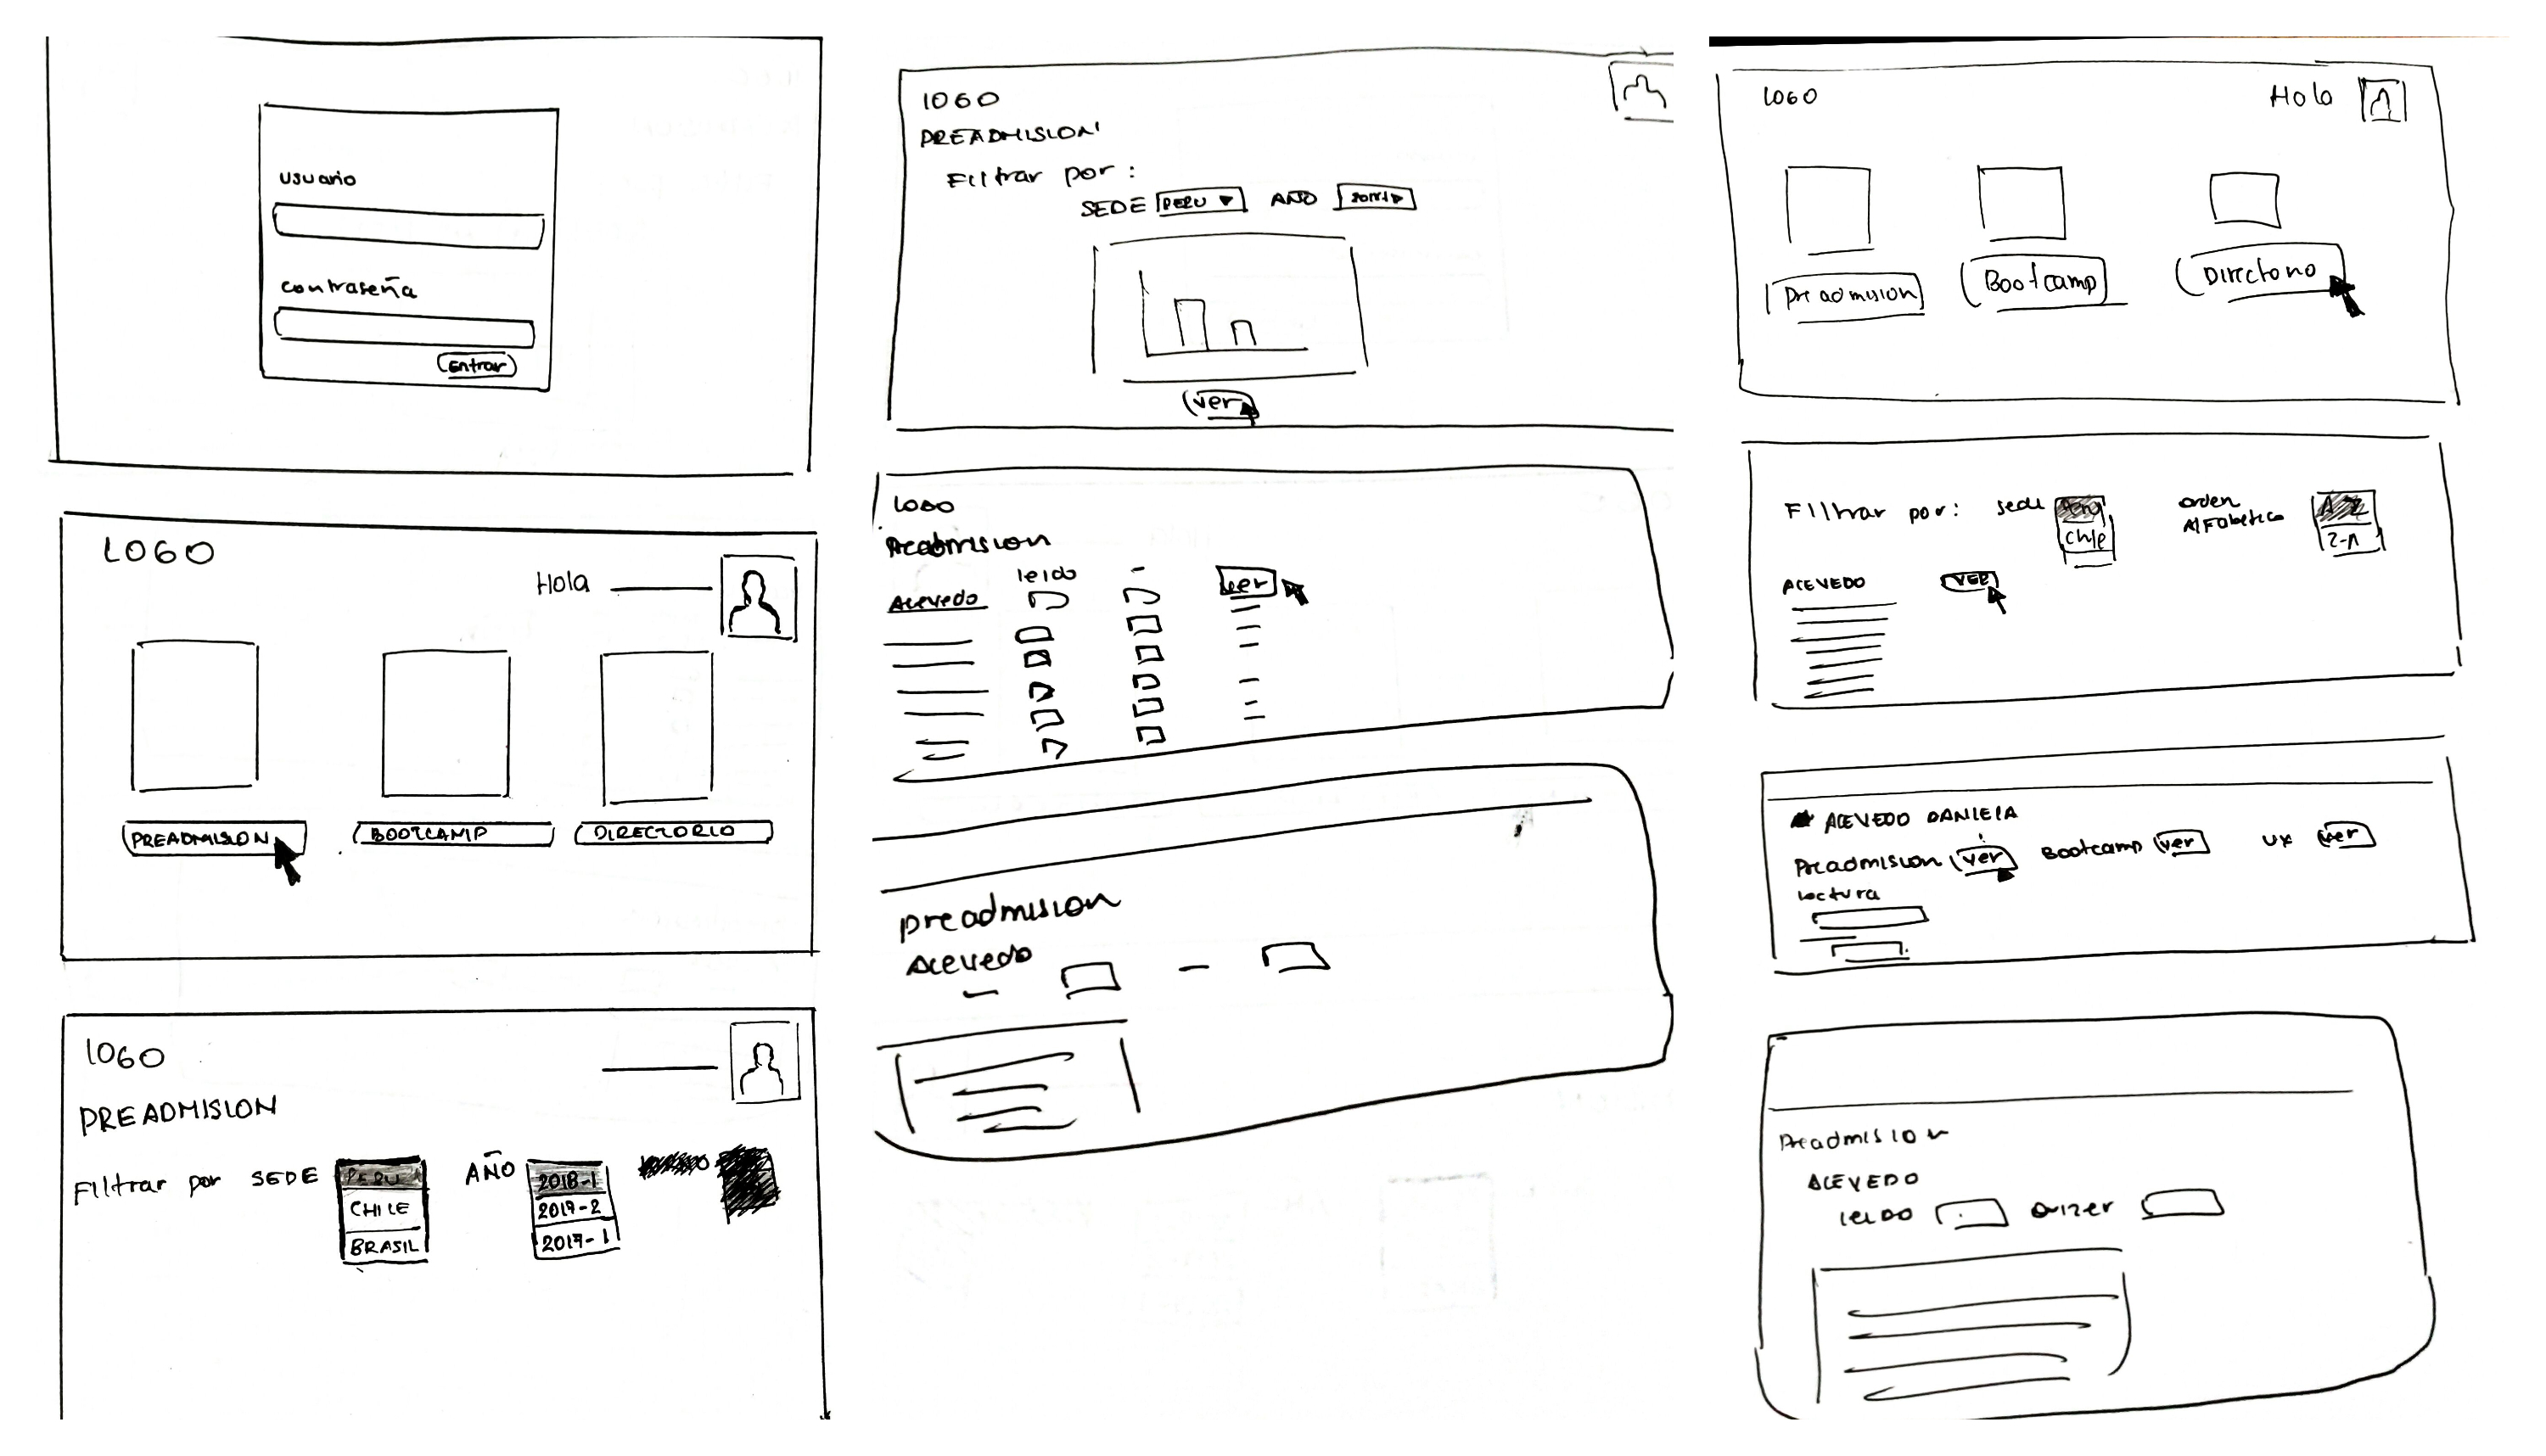 usuario
contraseña
Entrar
LOGO
Hola
PREADMISION
BOOTCAMP
DIRECTORIO
LOGO
PREADMISION
Filtrar por SEDE PERU AÑO 2018-1
CHILE 2017-2
BRASIL 2017-1
LOGO
PREADMISION
Filtrar por:
SEDE PERU AÑO
ver
LOGO
Preadmision
leido
Acevedo ver
preadmision
Acevedo
LOGO Hola
Preadmision Bootcamp Directorio
Filtrar por: sede orden
Alfabetico A Z
Chile Z-A
ACEVEDO VER
ACEVEDO DANIELA
Preadmision ver Bootcamp ver UX ver
lectura
Preadmision
ACEVEDO
leido